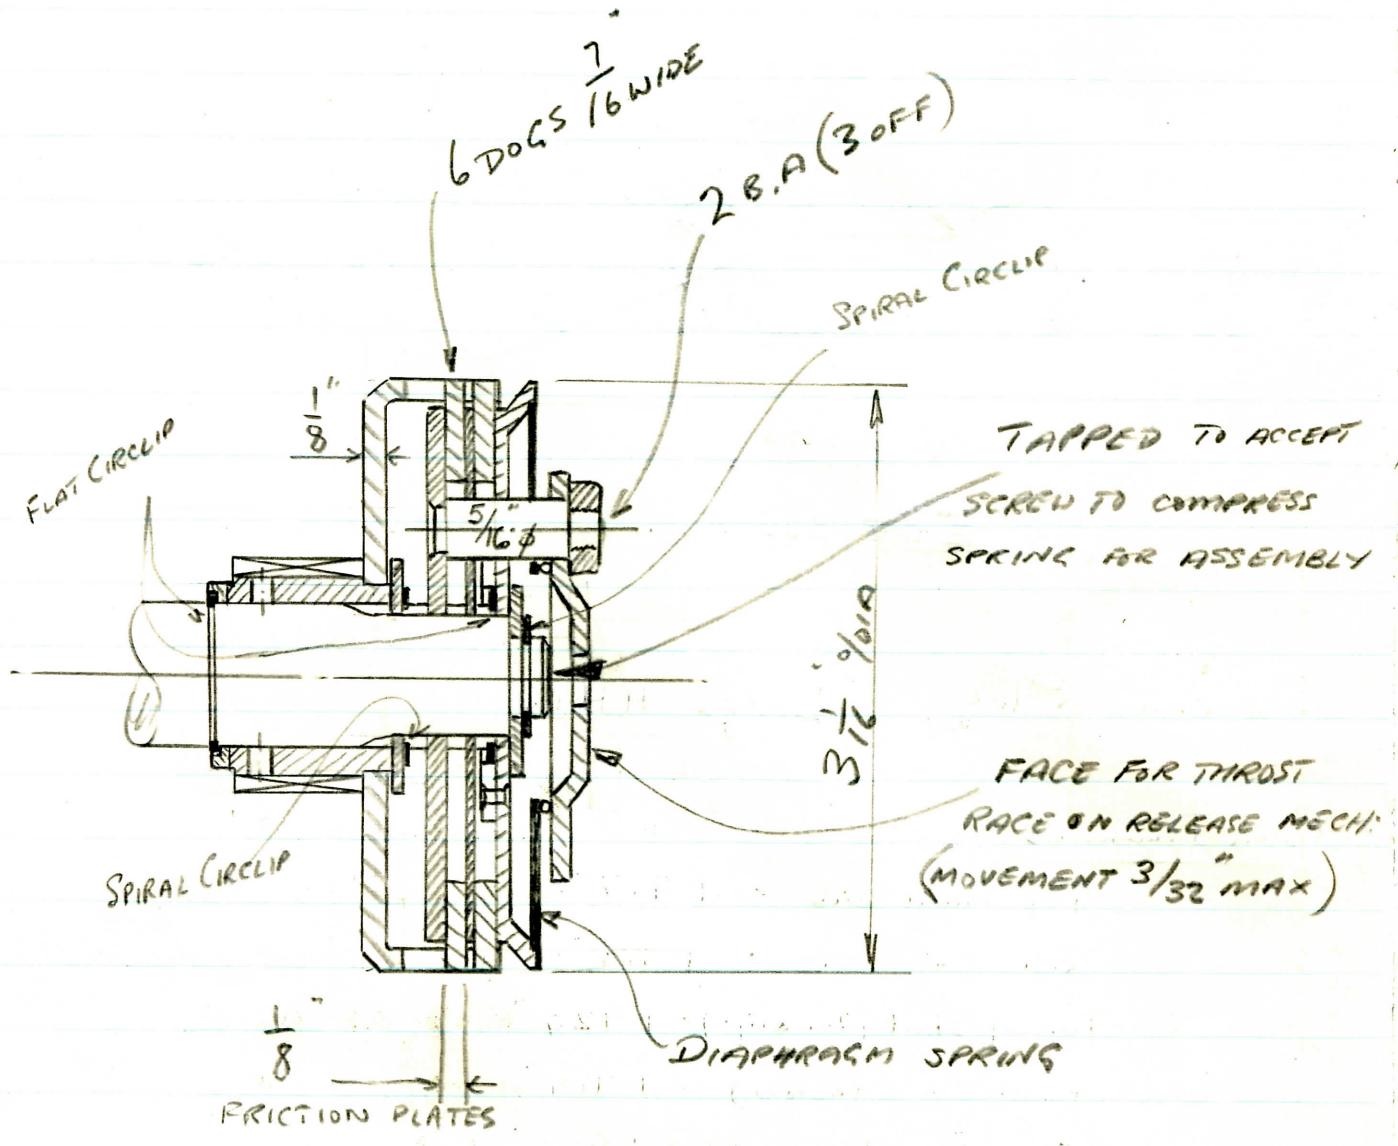 6 DOGS 7/16" WIDE
2 B.A (3 OFF)
SPIRAL CIRCLIP
1/8"
FLAT CIRCLIP
5/16" ϕ
TAPPED TO ACCEPT
SCREW TO COMPRESS
SPRING FOR ASSEMBLY
3 1/16" O/DIA
FACE FOR THROST
RACE ON RELEASE MECH:
(MOVEMENT 3/32" MAX)
SPIRAL CIRCLIP
DIAPHRAGM SPRING
1/8"
FRICTION PLATES